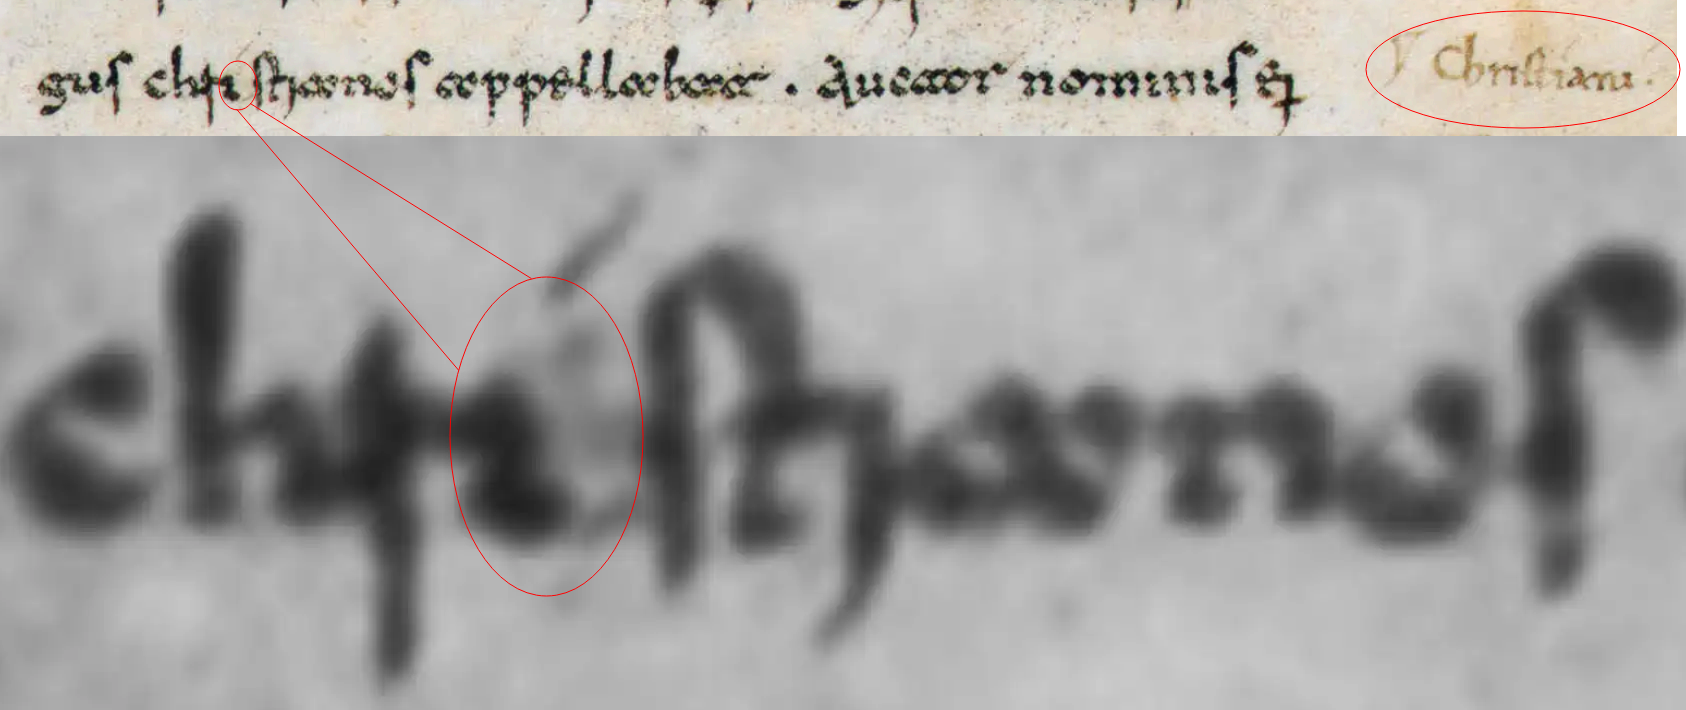 gus chri stianos appellabat . Auctor nominis
Christiani.
chri stianos